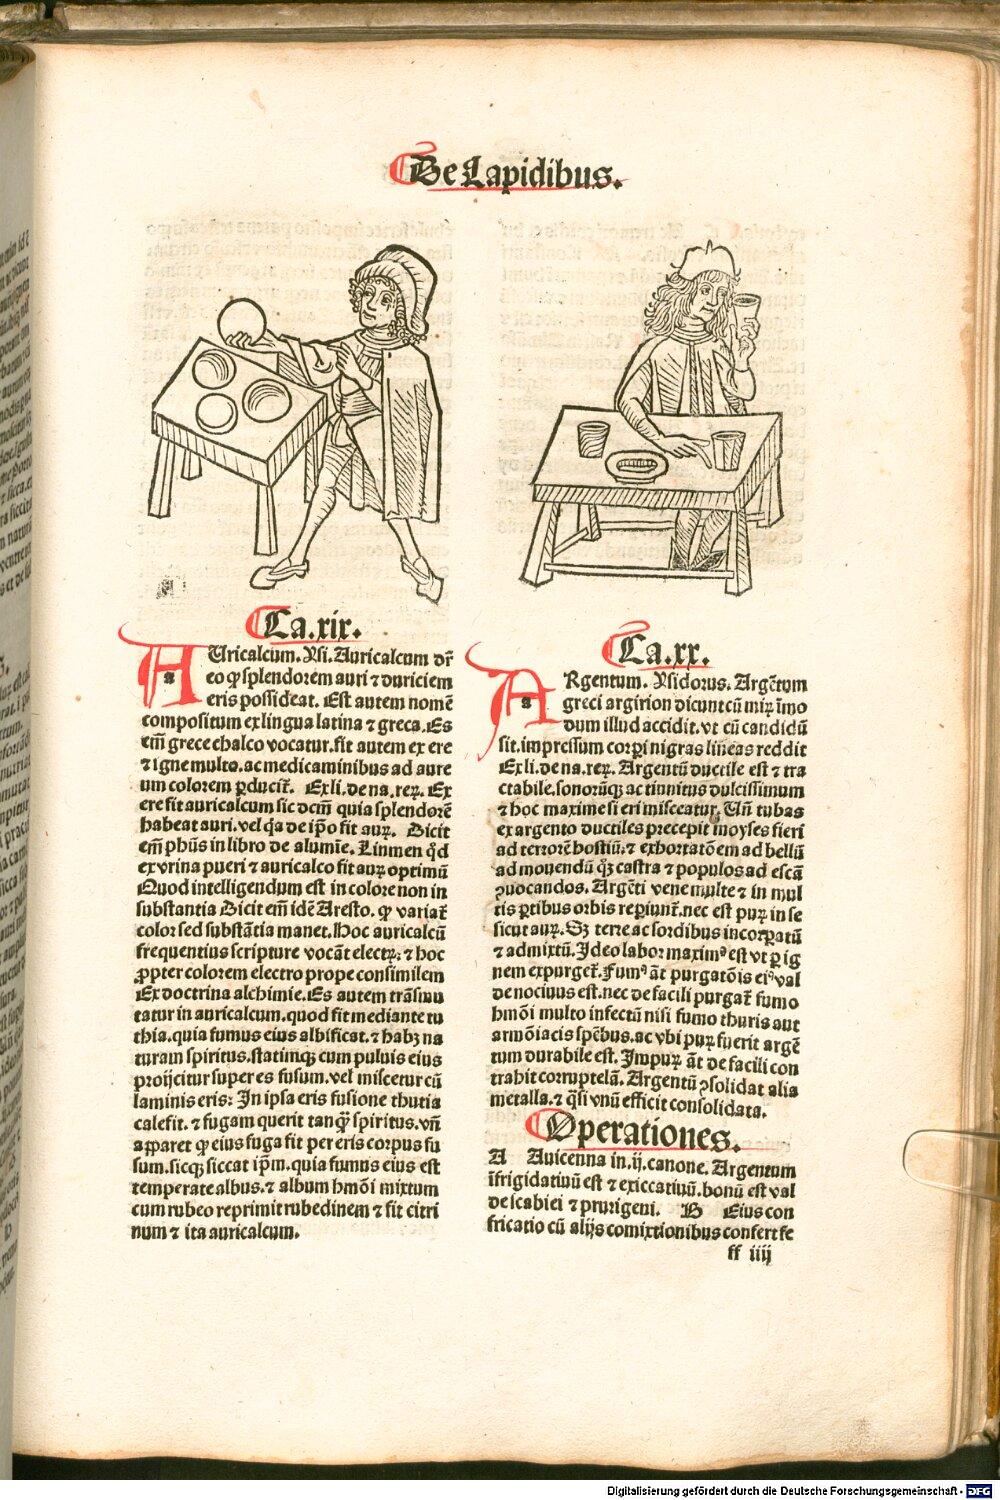 De Lapidibus.
Ca.xix.
AUricalcum. Ysi. Auricalcum dr̄
eo ꝙ splendorem auri ⁊ duriciem
eris possideat. Est autem nomē
compositum ex lingua latina ⁊ greca. Es
em̄ grece chalco vocatur. fit autem ex ere
⁊ igne multo. ac medicaminibus ad aure
um colorem ꝑducit᷑. Ex li. de na. reꝝ. Ex
ere fit auricalcum sic dcm̄ quia splendorē
habeat auri. vel q̄a de ip̄o fit auꝝ. Dicit
em̄ ph̄us in libro de alumīe. Linmen q̄d
ex vrina pueri ⁊ auricalco fit auꝝ optimū
Quod intelligendum est in colore non in
substantia Dicit em̄ idē Aresto. ꝙ variat᷑
color sed substātia manet. Hoc auricalcū
frequentius scripture vocāt electꝝ: ⁊ hoc
ꝓpter colorem electro prope consimilem
Ex doctrina alchimie. Es autem trāsmu
tatur in auricalcum. quod fit mediante tu
thia. quia fumus eius albificat. ⁊ habꝫ na
turam spiritus. statimqꝫ cum puluis eius
proijcitur super es fusum. vel miscetur cū
laminis eris: In ipsa eris fusione thutia
calefit. ⁊ fugam querit tanꝙ̄ spiritus. vn̄
apparet ꝙ eius fuga fit per eris corpus fu
sum. sicqꝫ siccat ip̄m. quia fumus eius est
temperate albus. ⁊ album hmōi mixtum
cum rubeo reprimit rubedinem ⁊ fit citri
num ⁊ ita auricalcum.
Ca.xx.
ARgentum. Ysidorus. Argētum
greci argirion dicunt cū miꝝ īmo
dum illud accidit. vt cū candidū
sit. impressum corpi nigras lineas reddit
Ex li. de na. reꝝ. Argentū ductile est ⁊ tra
ctabile. sonorūqꝫ ac tinnitus dulcissimum
⁊ hoc maxime si eri misceatur. Un̄ tubas
ex argento ductiles precepit moyses fieri
ad terrorē hostiū: ⁊ exhortatōem ad bellū
ad mouendū qꝫ castra ⁊ populos ad escā
ꝓuocandos. Argēti vene multe ⁊ in mul
tis ꝑtibus orbis reꝑiunt᷑. nec est puꝝ in se
sicut auꝝ. Sꝫ terre ac sordibus incorꝑatū
⁊ admixtū. Ideo labor maximꝰ est vt ꝑ ig
nem expurget᷑. Fumꝰ āt purgatōis eiꝰ val
de nociuus est. nec de facili purgat᷑ fumo
hmōi multo infectū nisi fumo thuris aut
armōiacis spēbus. ac vbi puꝝ fuerit argē
tum durabile est. Impuꝝ āt de facili con
trahit corruptelā. Argentū ꝯsolidat alia
metalla. ⁊ q̄si vnū efficit consolidata.
Operationes.
A Auicenna in .ij. canone. Argentum
īfrigidatiuū est ⁊ exiccatiuū. bonū est val
de scabiei ⁊ prurigeni. B Eius con
fricatio cū alijs comixtionibus confert fe
ff iiij
Digitalisierung gefördert durch die Deutsche Forschungsgemeinschaft - DFG